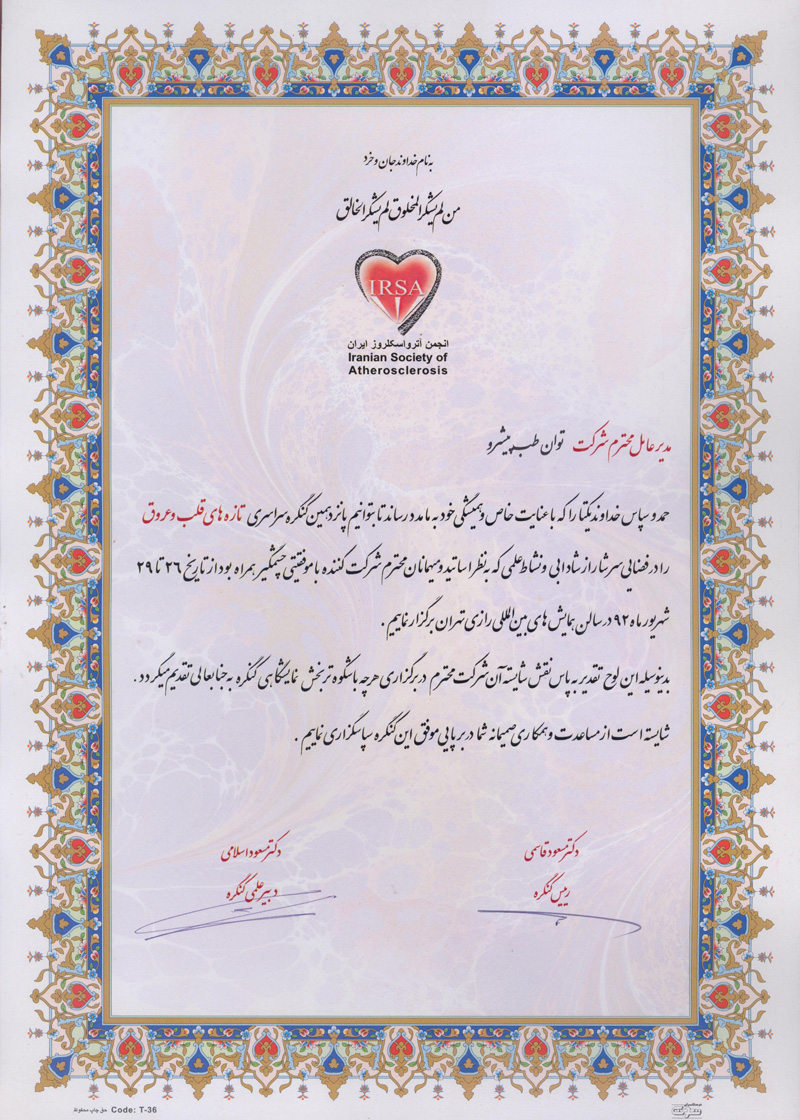 به نام خداوند جان و خرد
من لم یشکر المخلوق لم یشکر الخالق
IRSA
انجمن آترواسکلروز ایران
Iranian Society of
Atherosclerosis
مدیر عامل محترم شرکت توان طب پیشرو
حمد و سپاس خداوند یکتا را که با عنایت خاص و همیشگی خود به ما مدد رساند تا بتوانیم پانزدهمین کنگره سراسری تازه های قلب و عروق
را در فضایی سرشار از شادابی و نشاط علمی که به نظر اساتید و میهمانان محترم شرکت کننده با موفقیتی چشمگیر همراه بود از تاریخ ۲۶ تا ۲۹
شهریور ماه ۹۲ در سالن همایش های بین المللی رازی تهران برگزار نماییم .
بدینوسیله این لوح تقدیر به پاس نقش شایسته آن شرکت محترم در برگزاری هرچه باشکوه تر بخش نمایشگاهی کنگره به جنابعالی تقدیم میگردد .
شایسته است از مساعدت و همکاری صمیمانه شما در برپایی موفق این کنگره سپاسگزاری نماییم .
دکتر مسعود قاسمی
رییس کنگره
دکتر مسعود اسلامی
دبیر علمی کنگره
حق چاپ محفوظ Code: T-36